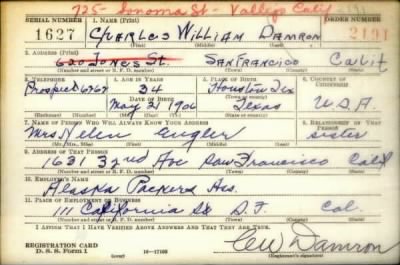 725- Sonoma St- Vallejo Calif
SERIAL NUMBER 1. NAME (Print) ORDER NUMBER
1627 CHARLES WILLIAM DAMRON 2191
(First) (Middle) (Last)
2. ADDRESS (Print)
600 JONES St. SAN FRANCICO Calif
(Number and street or R. F. D. number) (Town) (County) (State)
3. TELEPHONE 4. AGE IN YEARS 5. PLACE OF BIRTH 6. COUNTRY OF CITIZENSHIP
Prospect 6767 34 Houston Tex
DATE OF BIRTH (Town or county)
May 21 1906 Texas U.S.A.
(Exchange) (Number) (Mo.) (Day) (Yr.) (State or country)
7. NAME OF PERSON WHO WILL ALWAYS KNOW YOUR ADDRESS 8. RELATIONSHIP OF THAT PERSON
Mrs Helen Engler sister
(Mr., Mrs., Miss) (First) (Middle) (Last)
9. ADDRESS OF THAT PERSON
1631 32nd Ave San Francisco Calif
(Number and street or R. F. D. number) (Town) (County) (State)
10. EMPLOYER'S NAME
Alaska Packers Ass.
11. PLACE OF EMPLOYMENT OR BUSINESS
111 California St S.F. Cal.
(Number and street or R. F. D. number) (Town) (County) (State)
I AFFIRM THAT I HAVE VERIFIED ABOVE ANSWERS AND THAT THEY ARE TRUE.
REGISTRATION CARD
D. S. S. Form 1 16-17105 CW Damron
(Registrant's signature)